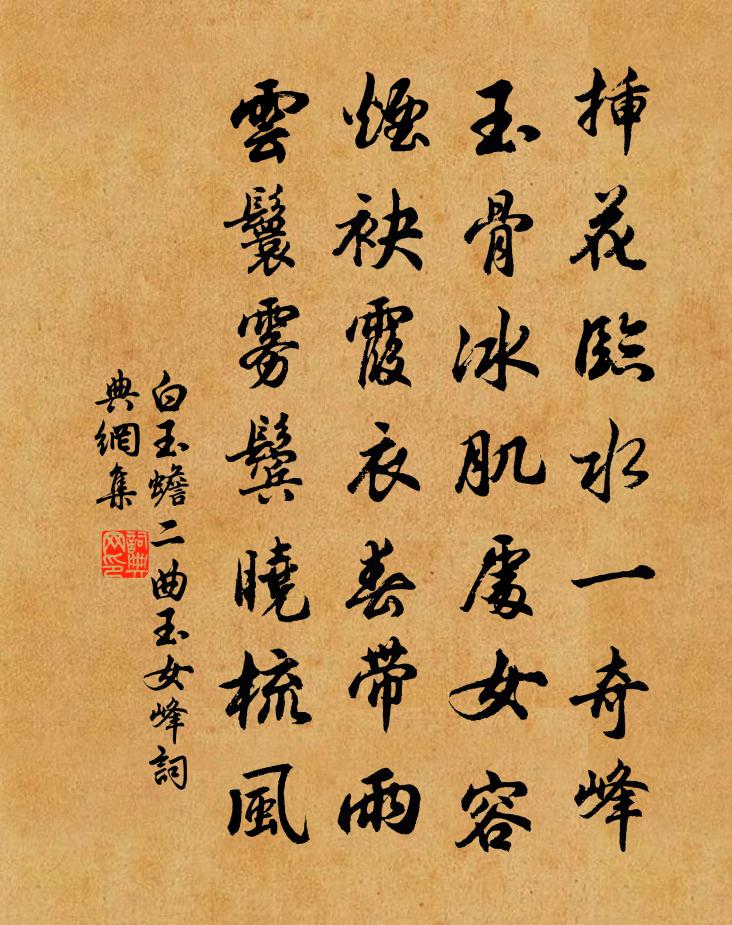 挿花臨水一奇峰
玉骨冰肌處女容
煙袂霞衣春帶雨
雲鬟雾鬢曉梳風
白玉蟾二曲玉女峰詞
典網集
詞典
网印